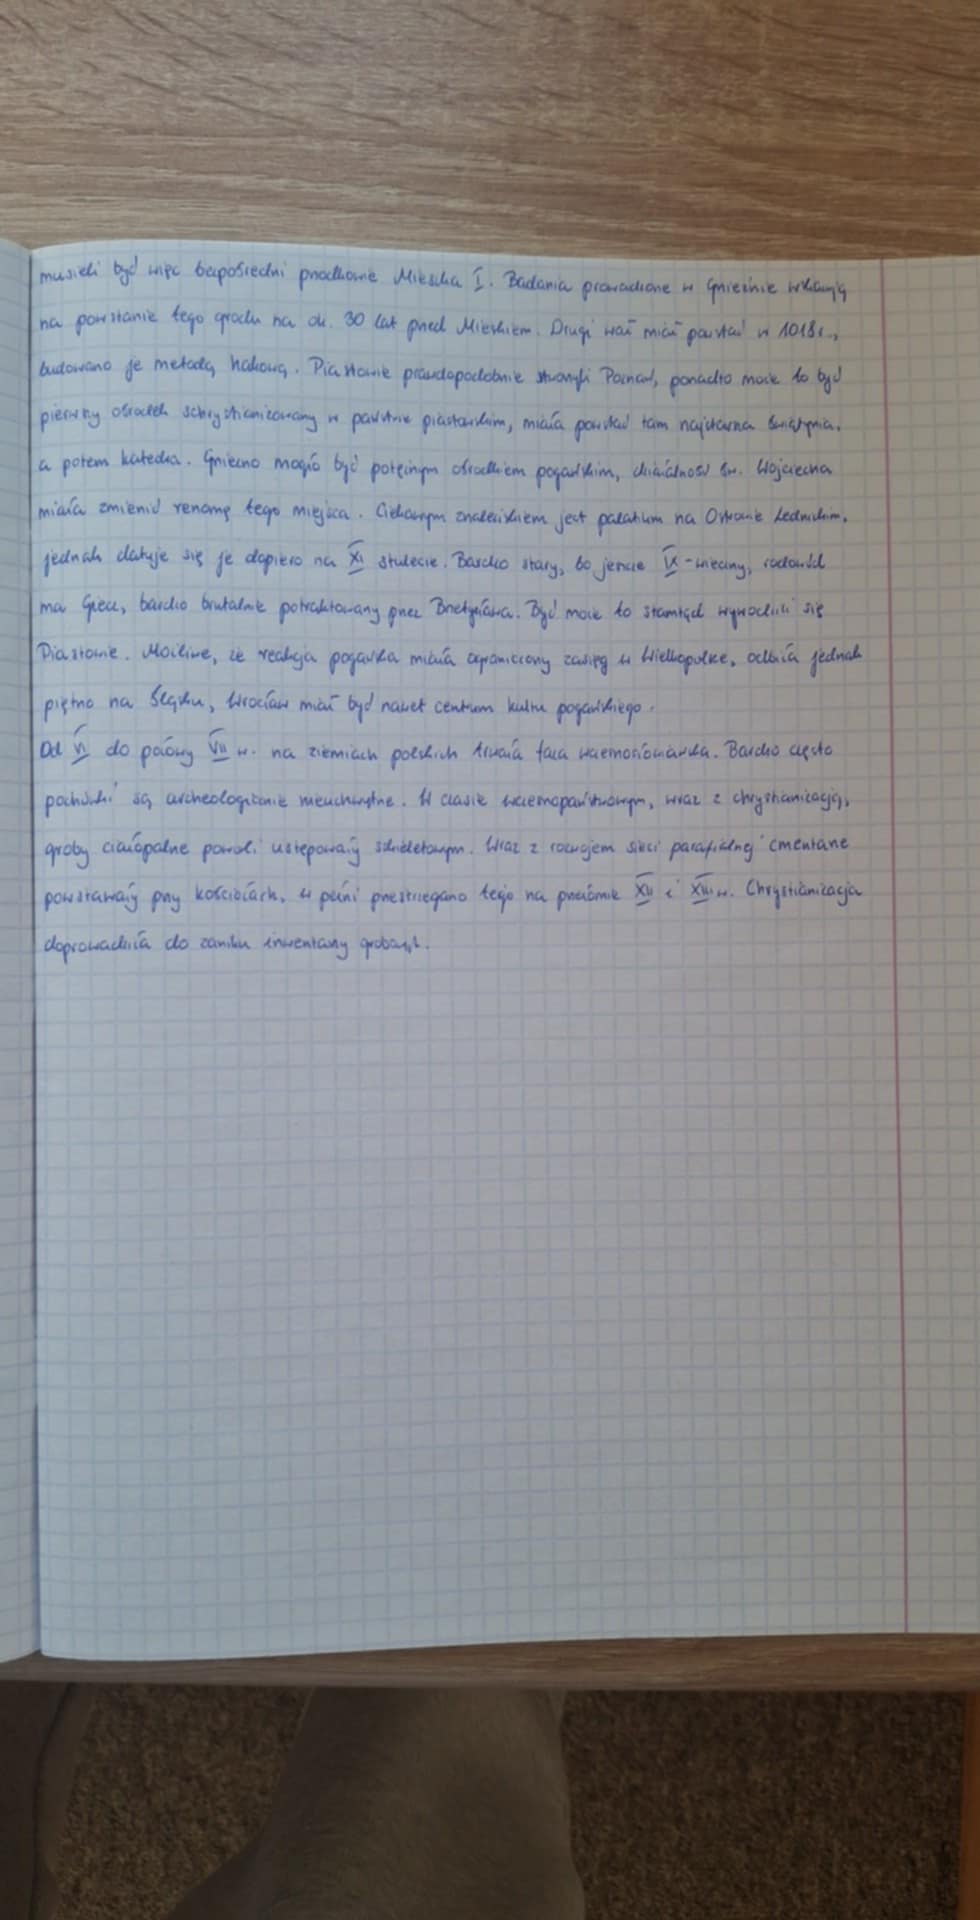 musieli być więc bezpośredni przodkowie Mieszka I. Badania prowadzone w Gnieźnie wskazują
na powstanie tego grodu na ok. 30 lat przed Mieszkiem. Drugi wał miał powstać w 1018r.,
budowano je metodą hakową. Piastowie prawdopodobnie stworzyli Poznań, ponadto może to być
pierwszy ośrodek schrystianizowany w państwie piastowskim, miała powstać tam najstarsza świątynia,
a potem katedra. Gniezno mogło być potężnym ośrodkiem pogańskim, działalność św. Wojciecha
miała zmienić renomę tego miejsca. Ciekawym znaleziskiem jest palatium na Ostrowie Lednickim,
jednak datuje się je dopiero na XI stulecie. Bardzo stary, bo jeszcze IX-wieczny, rodowód
ma Giecz, bardzo brutalnie potraktowany przez Brzetysława. Być może to stamtąd wywodzili się
Piastowie. Możliwe, że reakcja pogańska miała ograniczony zasięg w Wielkopolsce, odbiła jednak
piętno na Śląsku, Wrocław miał być nawet centrum kultu pogańskiego.
Od VI do połowy VII w. na ziemiach polskich trwała faza wczesnosłowiańska. Bardzo często
pochówki są archeologicznie nieuchwytne. W czasie wczesnopaństwowym, wraz z chrystianizacją,
groby ciałopalne powoli ustępowały szkieletowym. Wraz z rozwojem sieci parafialnej cmentarze
powstawały przy kościołach, w pełni przestrzegano tego na przełomie XII i XIII w. Chrystianizacja
doprowadziła do zaniku inwentarzy grobowych.